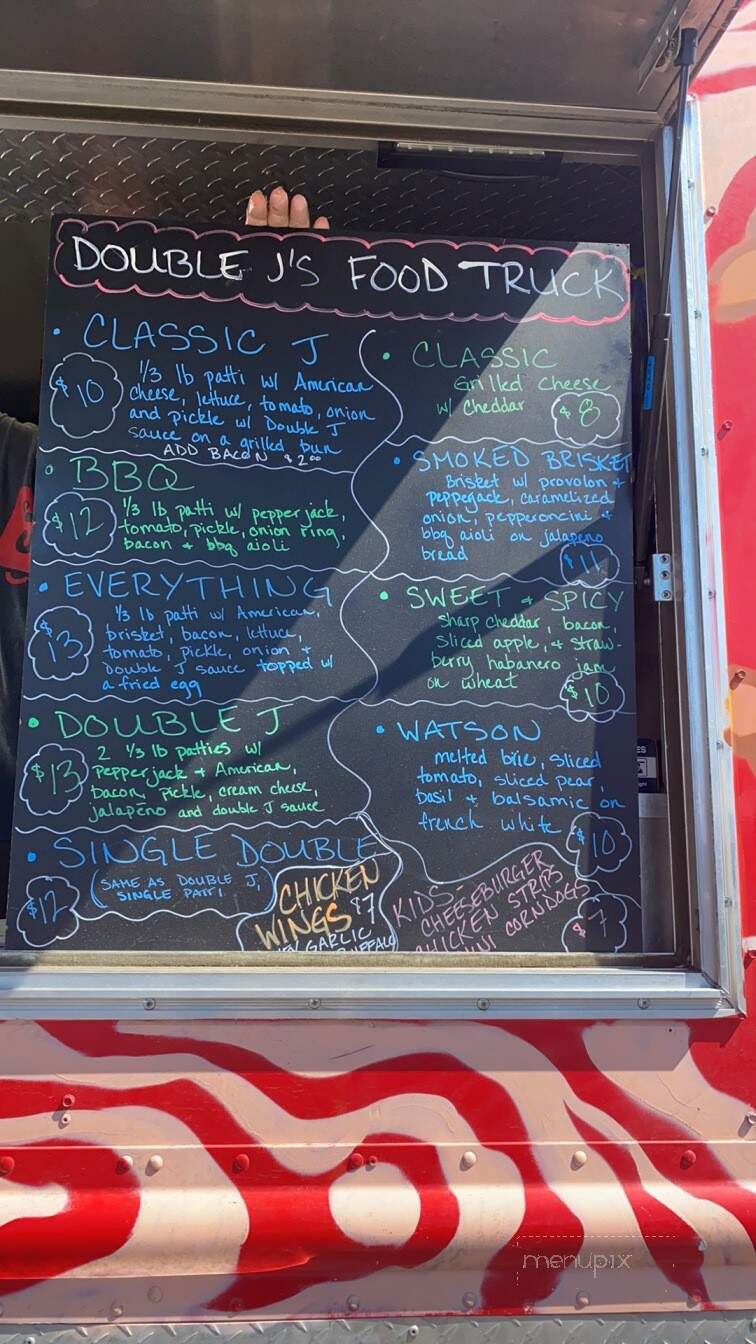 DOUBLE J'S FOOD TRUCK
• CLASSIC J
$10
1/3 lb patti w/ American
cheese, lettuce, tomato, onion
and pickle w/ Double J
sauce on a grilled bun
ADD BACON $2.00
• BBQ
$12
1/3 lb patti w/ pepper jack,
tomato, pickle, onion ring,
bacon + bbq aioli
• EVERYTHING
$13
1/3 lb patti w/ American,
brisket, bacon, lettuce,
tomato, pickle, onion +
Double J sauce topped w/
a fried egg
• DOUBLE J
$13
2 1/3 lb patties w/
Pepperjack + American,
bacon, pickle, cream cheese,
jalapeño and double J sauce
• SINGLE DOUBLE
$12
(SAME AS DOUBLE J,
SINGLE PATTI.
CHICKEN
WINGS $7
GARLIC
BUFFALO
• CLASSIC
Grilled Cheese
w/ Cheddar
$8
• SMOKED BRISKET
Brisket w/ provolon +
pepperjack, caramelized
onion, pepperoncini +
bbq aioli on jalapeno
bread
$11
• SWEET + SPICY
sharp cheddar, bacon,
sliced apple, + straw-
berry habanero jam
on wheat
$10
• WATSON
melted brie, sliced
tomato, sliced pear,
basil + balsamic on
french white
$10
KIDS-
CHEESEBURGER
CHICKEN STRIPS
MINI CORNDOGS
$7
menupix